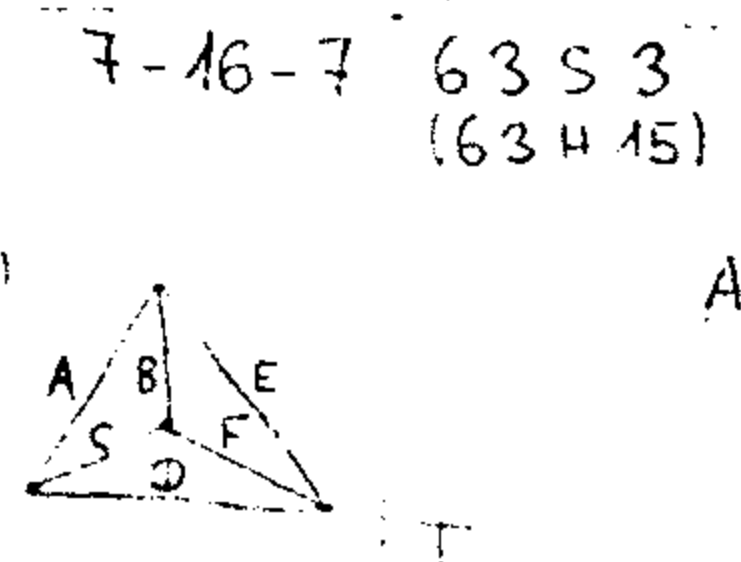 7-16-7 63 S 3
(63 H 15)
)
A
A B E
S F
D
T